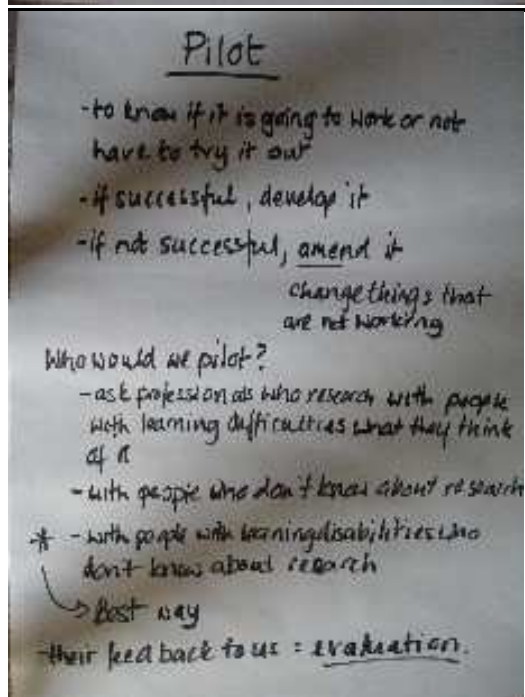 Pilot
-to know if it is going to work or not
have to try it out
-if successful, develop it
-if not successful, amend it
change things that
are not working
Who would we pilot?
-ask professionals who research with people
with learning difficulties what they think
of it
-with people who don't know about research
* -with people with learning disabilities who
don't know about research
Best way
-their feedback to us = evaluation.